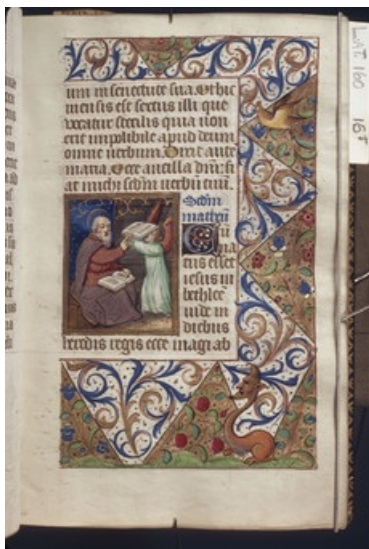 um in senectute sua. Et hic
mensis est sextus illi que
vocatur sterilis quia non
erit impossibile apud deum
omne verbum. Dixit aute
maria. Ecce ancilla dni: fi
at michi scdm verbu tuu.
Scdm
matheu
Cu
na
tus esset
iesus in
bethlee
iude in
diebus
herodis regis ecce magi ab
LAT 160
16r